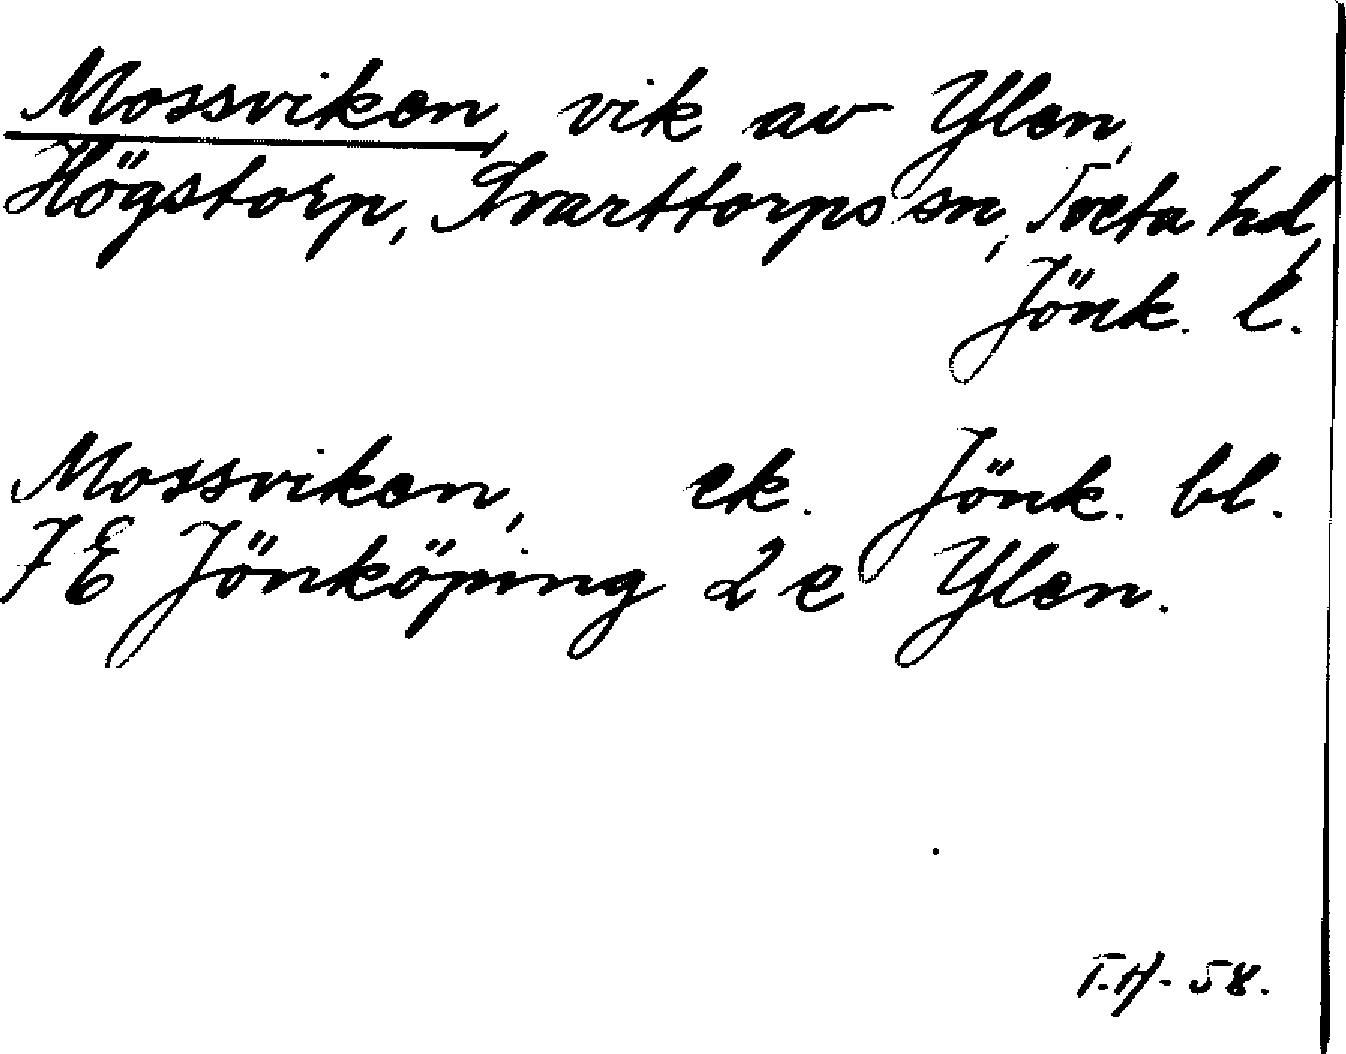 Mossviken, vik av Ylen,
Högstorp, Svarttorps sn, Tveta hd,
Jönk. l.
Mossviken, ek. Jönk. bl.
7E Jönköping 2 e Ylen.
T.H. 58.